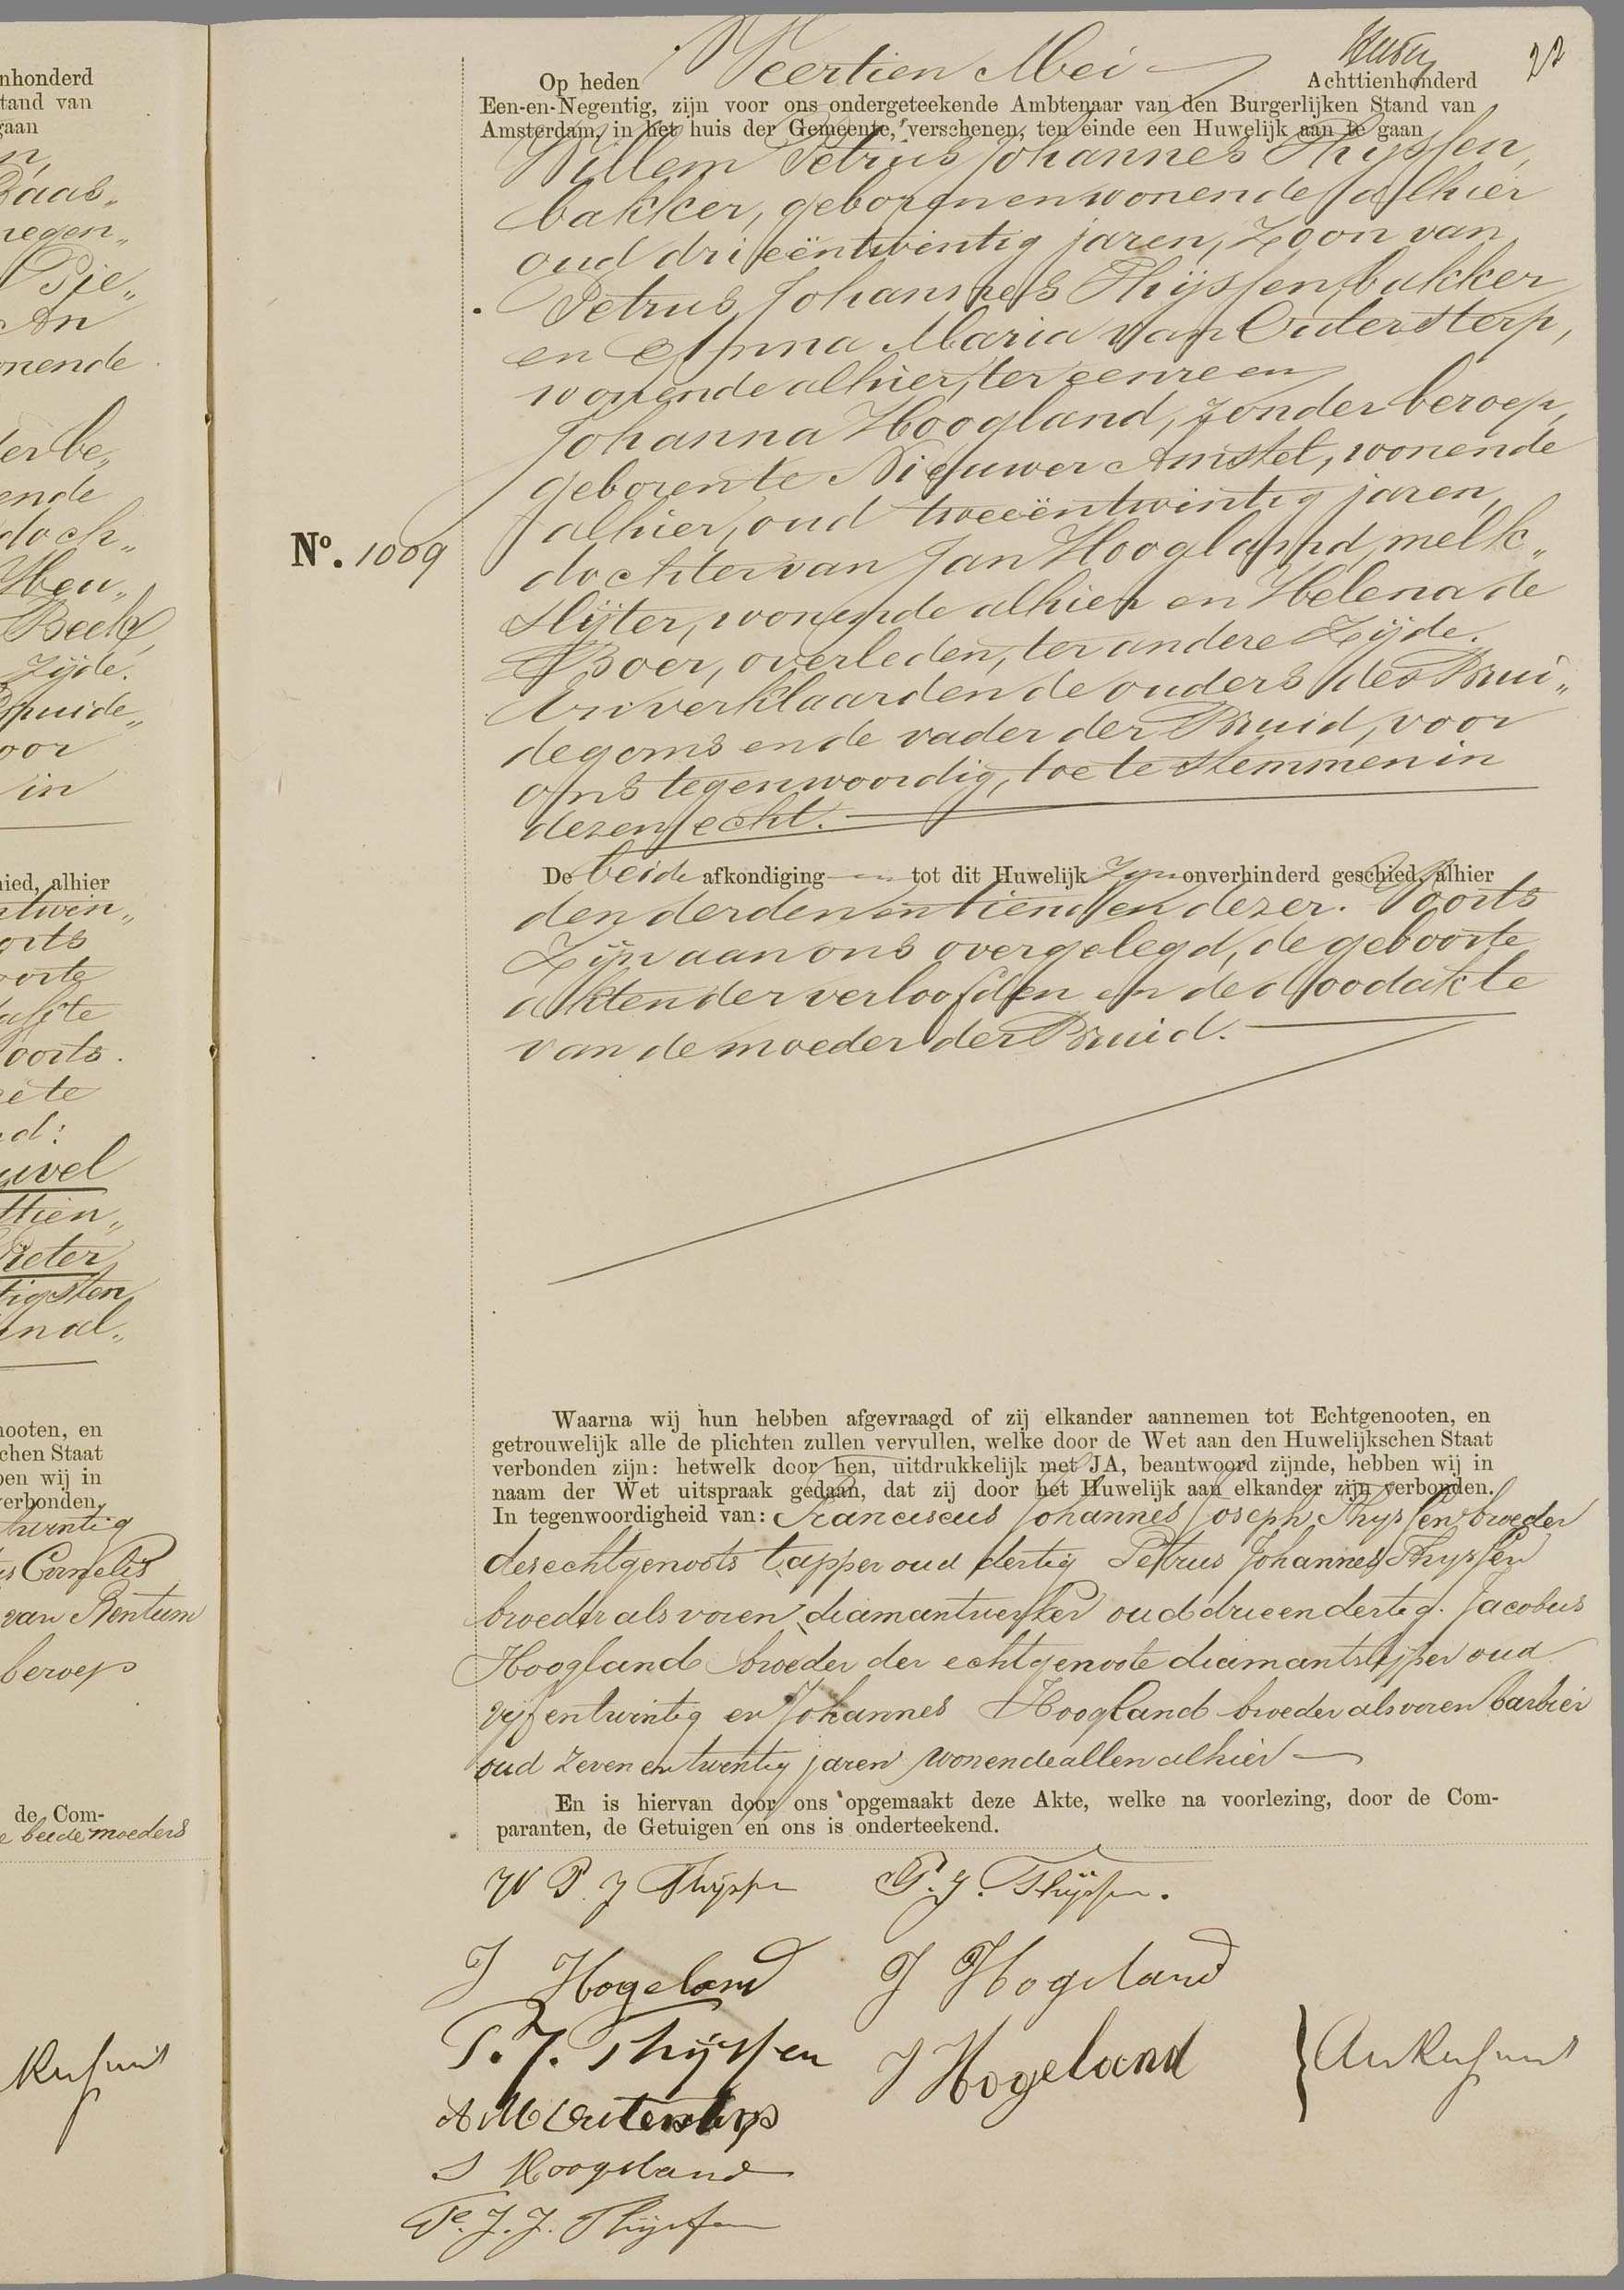 nhonderd
tand van
gaan
n,
Baas„
negen„
Pie„
An
onende
der be„
ende
doch„
Heu„
Beek,
Zijde.
Bruide„
oor
in
ied, alhier
ntwin„
orts
oorte
oorts.
ete
nd:
uvel
ttien„
Pieter
tigsten
nal„
nooten, en
chen Staat
en wij in
verbonden.
twintig
Cornelis
van Rentum
beroep
de Com-
e beide moeders
22
Op heden Veertien Mei Achttienhonderd
Een-en-Negentig, zijn voor ons ondergeteekende Ambtenaar van den Burgerlijken Stand van
Amsterdam, in het huis der Gemeente, verschenen, ten einde een Huwelijk aan te gaan
Willem Petrus Johannes Thijssen,
bakker, geboren en wonende alhier
oud drieëntwintig jaren, Zoon van
Petrus Johannes Thijssen, bakker
en Anna Maria van Outersterp,
wonende alhier, ter eenre en
Johanna Hoogland, zonder beroep,
geboren te Nieuwer Amstel, wonende
alhier, oud tweeëntwintig jaren,
No. 1009
dochter van Jan Hoogland, melk„
slijter, wonende alhier en Helena de
Boer, overleden, ter andere Zijde.
En verklaarden de ouders des Brui„
degoms en de vader der Bruid, voor
ons tegenwoordig, toe te stemmen in
dezen echt.
De beide afkondiging en tot dit Huwelijk Zijn onverhinderd geschied, alhier
den derden en tienden dezer. Voorts
Zijn aan ons overgelegd, de geboorte
akten der verloofden en de doodakte
van de moeder der Bruid.
Waarna wij hun hebben afgevraagd of zij elkander aannemen tot Echtgenooten, en
getrouwelijk alle de plichten zullen vervullen, welke door de Wet aan den Huwelijkschen Staat
verbonden zijn: hetwelk door hen, uitdrukkelijk met JA, beantwoord zijnde, hebben wij in
naam der Wet uitspraak gedaan, dat zij door het Huwelijk aan elkander zijn verbonden.
In tegenwoordigheid van: Franciscus Johannes Joseph Thyssen broeder
des echtgenoots tapper oud dertig Petrus Johannes Thyssen
broeder als voren diamantwerker oud drieendertig. Jacobus
Hoogland broeder der echtgenoote diamantslijper oud
vijfentwintig en Johannes Hoogland broeder als voren barbier
oud zevenentwintig jaren wonende allen alhier
En is hiervan door ons opgemaakt deze Akte, welke na voorlezing, door de Com-
paranten, de Getuigen en ons is onderteekend.
W P J Thijssen P. J. Thijssen.
J Hogeland J Hogeland
P. J. Thijssen J Hogeland
A M Outersterp
J Hoogeland
F. J. J. Thijssen